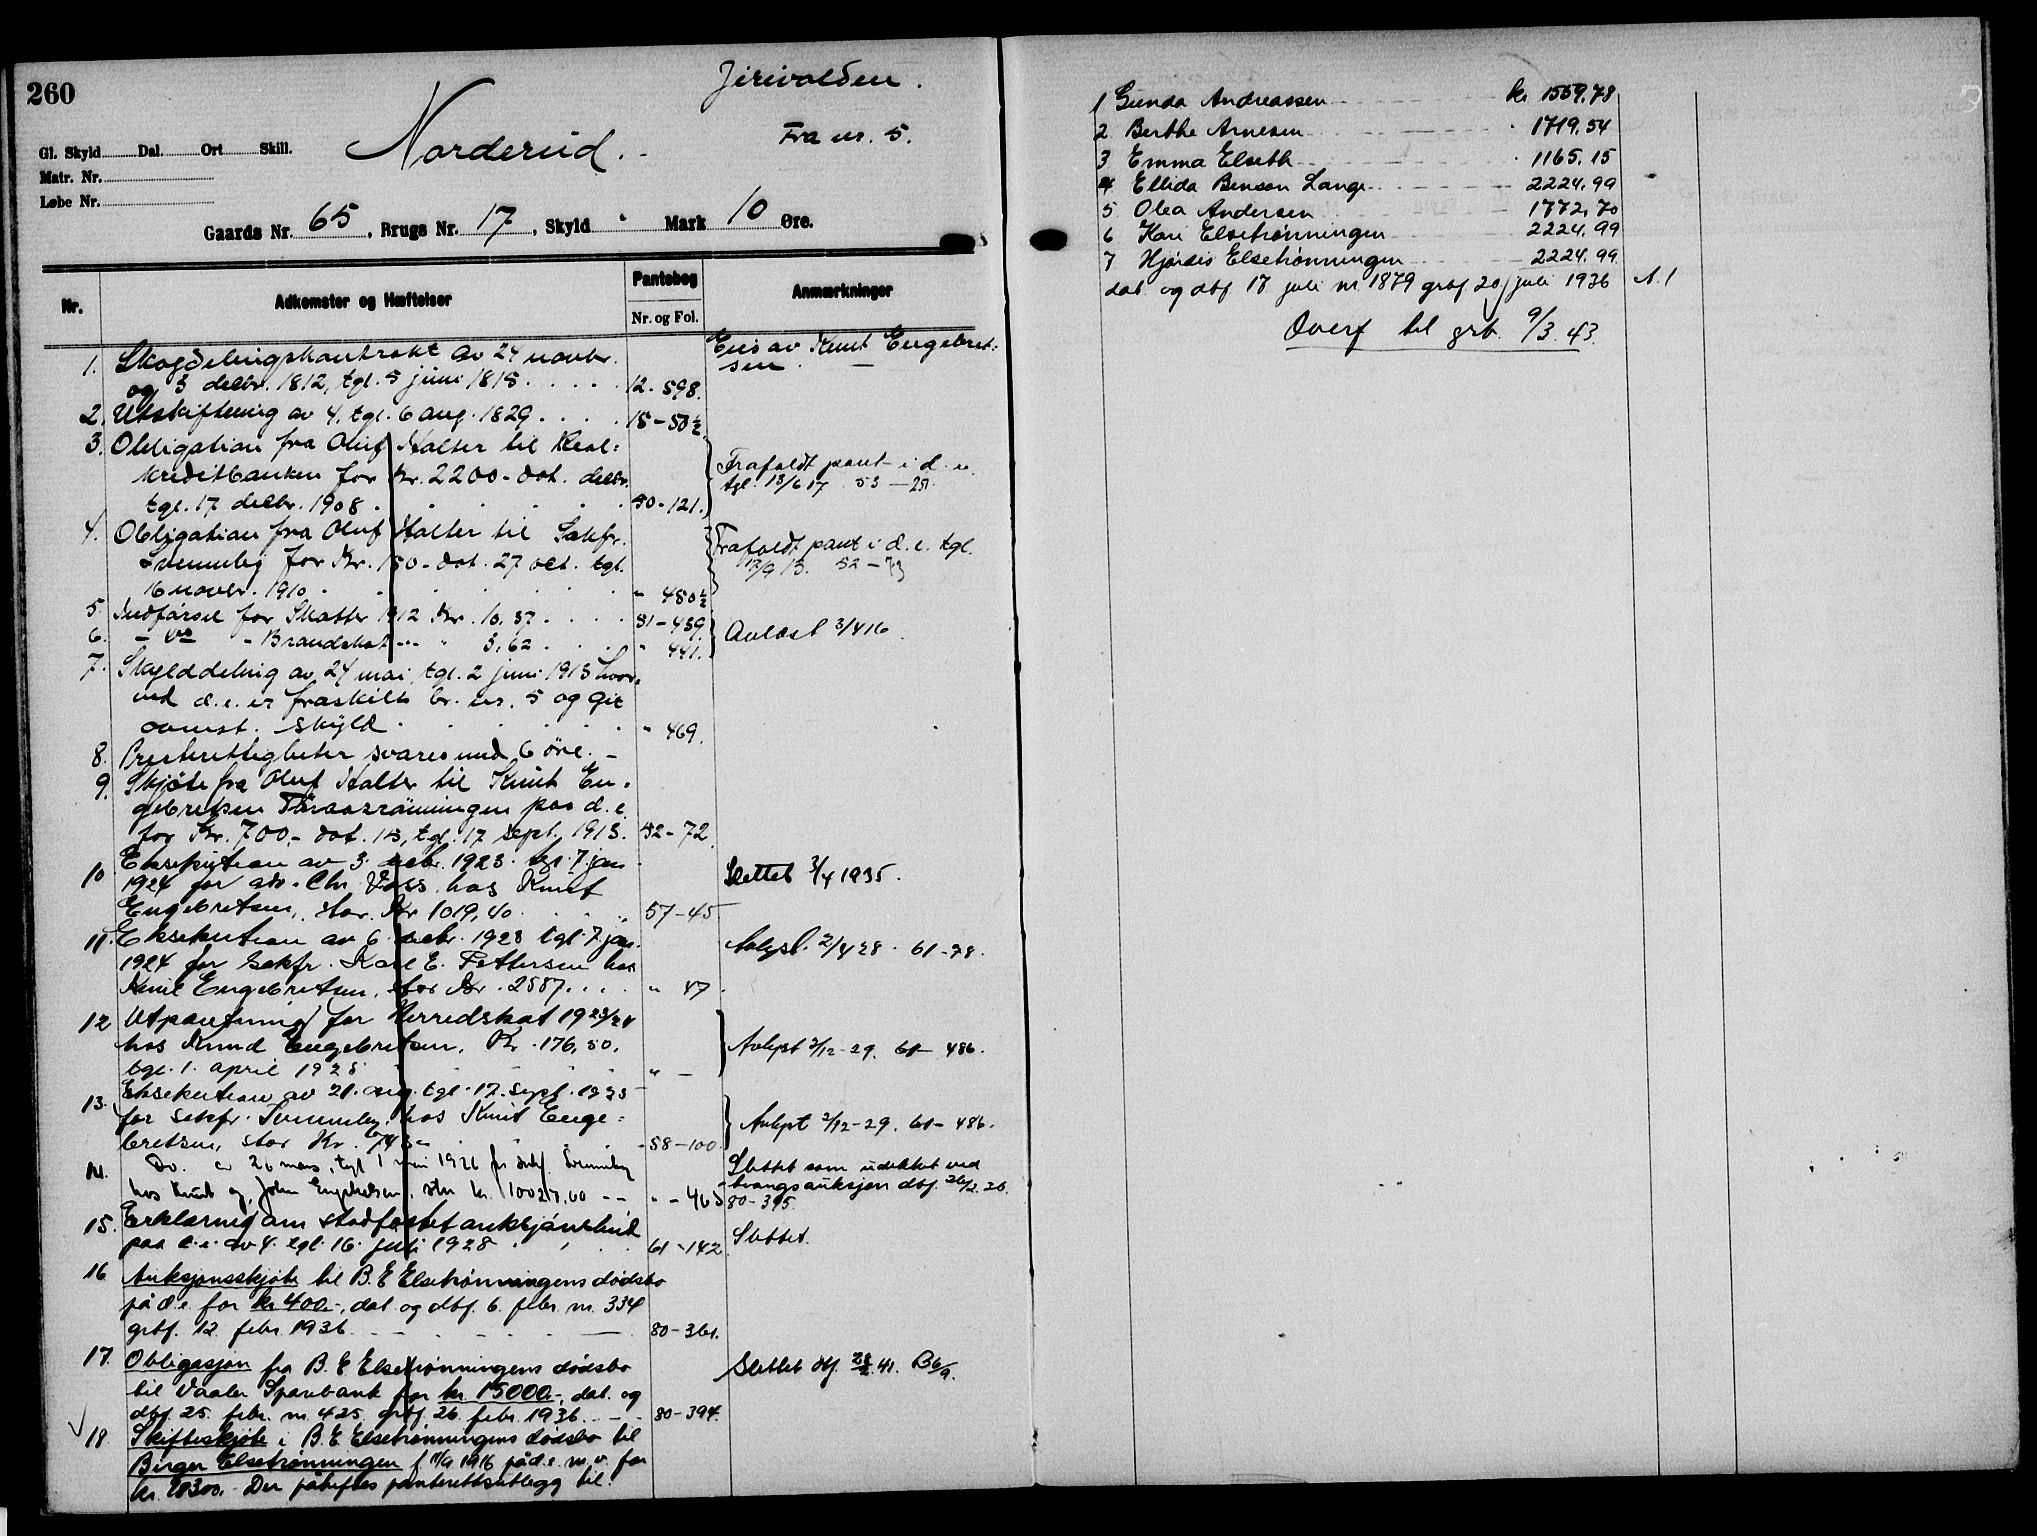 260
Jerivolden.
Norderud.
Fra nr. 5.
Gl. Skyld Dal. Ort Skill.
Matr. Nr.
Løbe Nr.
Gaards Nr. 65, Brugs Nr. 17, Skyld - Mark 10 Øre.
Nr. Adkomster og Hæftelser Pantebog Anmærkninger
Nr. og Fol.
1. Skogdelingskontrakt av 24 novbr. Eies av Knut Engebret-
og 3 decbr. 1812, tgl. 5 juni 1815 12-598. sen.
2. Utskiftning av 4, tgl. 6 aug. 1829 15-50½
3. Obligation fra Oluf Halter til Real-
kreditbanken for Kr. 2200- dat. decbr. Frafaldt pant i d. e.
tgl. 17 decbr. 1908. 50-121. tgl. 13/6 17 53-251.
4. Obligation fra Oluf Halter til Sakfr. Frafaldt pant i d. e. tgl.
Svenneby for Kr. 150- dat. 27 okt. tgl. 17/9 13. 52-73
16 novbr. 1910 " 480½
5. Indførsel for Skatter 1912 Kr. 10.37 51-439
6. - Do - Brandskat - " 3,62 " 441. Avlæst 3/4 16.
7. Skylddeling av 24 mai, tgl. 2 juni 1913 hvor-
ved d. e. er fraskilt br. nr. 5 og git
ovenst. skyld " 469.
8. Presterettigheter svares med 6 öre. -
9. Skjöte fra Oluf Halter til Knut En-
gebretsen Taraasrønningen paa d. e.
for Kr. 700,- dat. 13, tgl. 17 sept. 1913. 52-72.
10 Eksekution av 3. decbr. 1923. tgl. 7. jan
1924 for adv. Chr. Voss hos Knut Slettet 3/4 1935.
Engebretsen, stor Kr 1019,40 57-45
11. Eksekution av 6. decbr. 1923 tgl. 7 jan.
1924 for Sakfr. Kaare E. Pettersen hos Avlyst. 2/4 28. 61-78.
Knut Engebretsen, stor Kr. 2587 " 47
12 Utpantning for Herredskat 1923/24
hos Knud Engebretsen. Kr. 176,50, Avlyst 2/12-29. 61-486.
tgl. 1. april 1925 " -
13. Eksekution av 21. aug. tgl. 17. sept. 1925
for sakfr. Svenneby hos Knut Enge- Avlyst 2/12-29. 61-486.
bretsen, stor Kr. 743- 58-100.
14. Do. av 20 mars, tgl 1 mai 1926 for sakf. Svenneby Slettet som udekket ved
hos Knut og John Engebretsen, stor kr. 10027,00 " - 463 tvangsauksjon dbf. 26/2.36.
80-395.
15. Erklæring om stadfestet auksjonsbud
paa d. e. av 4. tgl. 16. juli 1928 61-142 Slettet.
16 Auksjonsskjöte til B. E. Elsetrønningens dödsbo
på d.e for kr 400.-, dat. og dbf. 6. febr. nr. 334
grbf. 12. febr. 1936. 80-361.
17. Obligasjon fra B. E. Elsetrønningens dödsbo Slettet dbf. 28/2.41. B6/9.
til Vaaler Sparebank for kr. 15000.-, dat. og
dbf. 25. febr. nr. 425. grbf. 26. febr. 1936 80-394.
18 Skifteskjöte i B. E. Elsetrønningens dødsbo til
Birger Elsetrønningen f. 11/9 1916 på d.e. m. v. for
kr. 28300.- Der påheftes panterettsutlegg til:
1 Gunda Andreassen kr 1559,78
2 Berthe Arnesen 1719,54
3 Emma Elseth 1165,15
4 Ellida Benson Lange 2224,99
5 Olea Andersen 1772,70
6 Kari Elsetrønningen 2224,99
7 Hjørdis Elsetrønningen 2224,99
dat. og dbf 17 juli nr 1879 grbf 20 juli 1936 A.1
Overf til grb. 9/3.43.